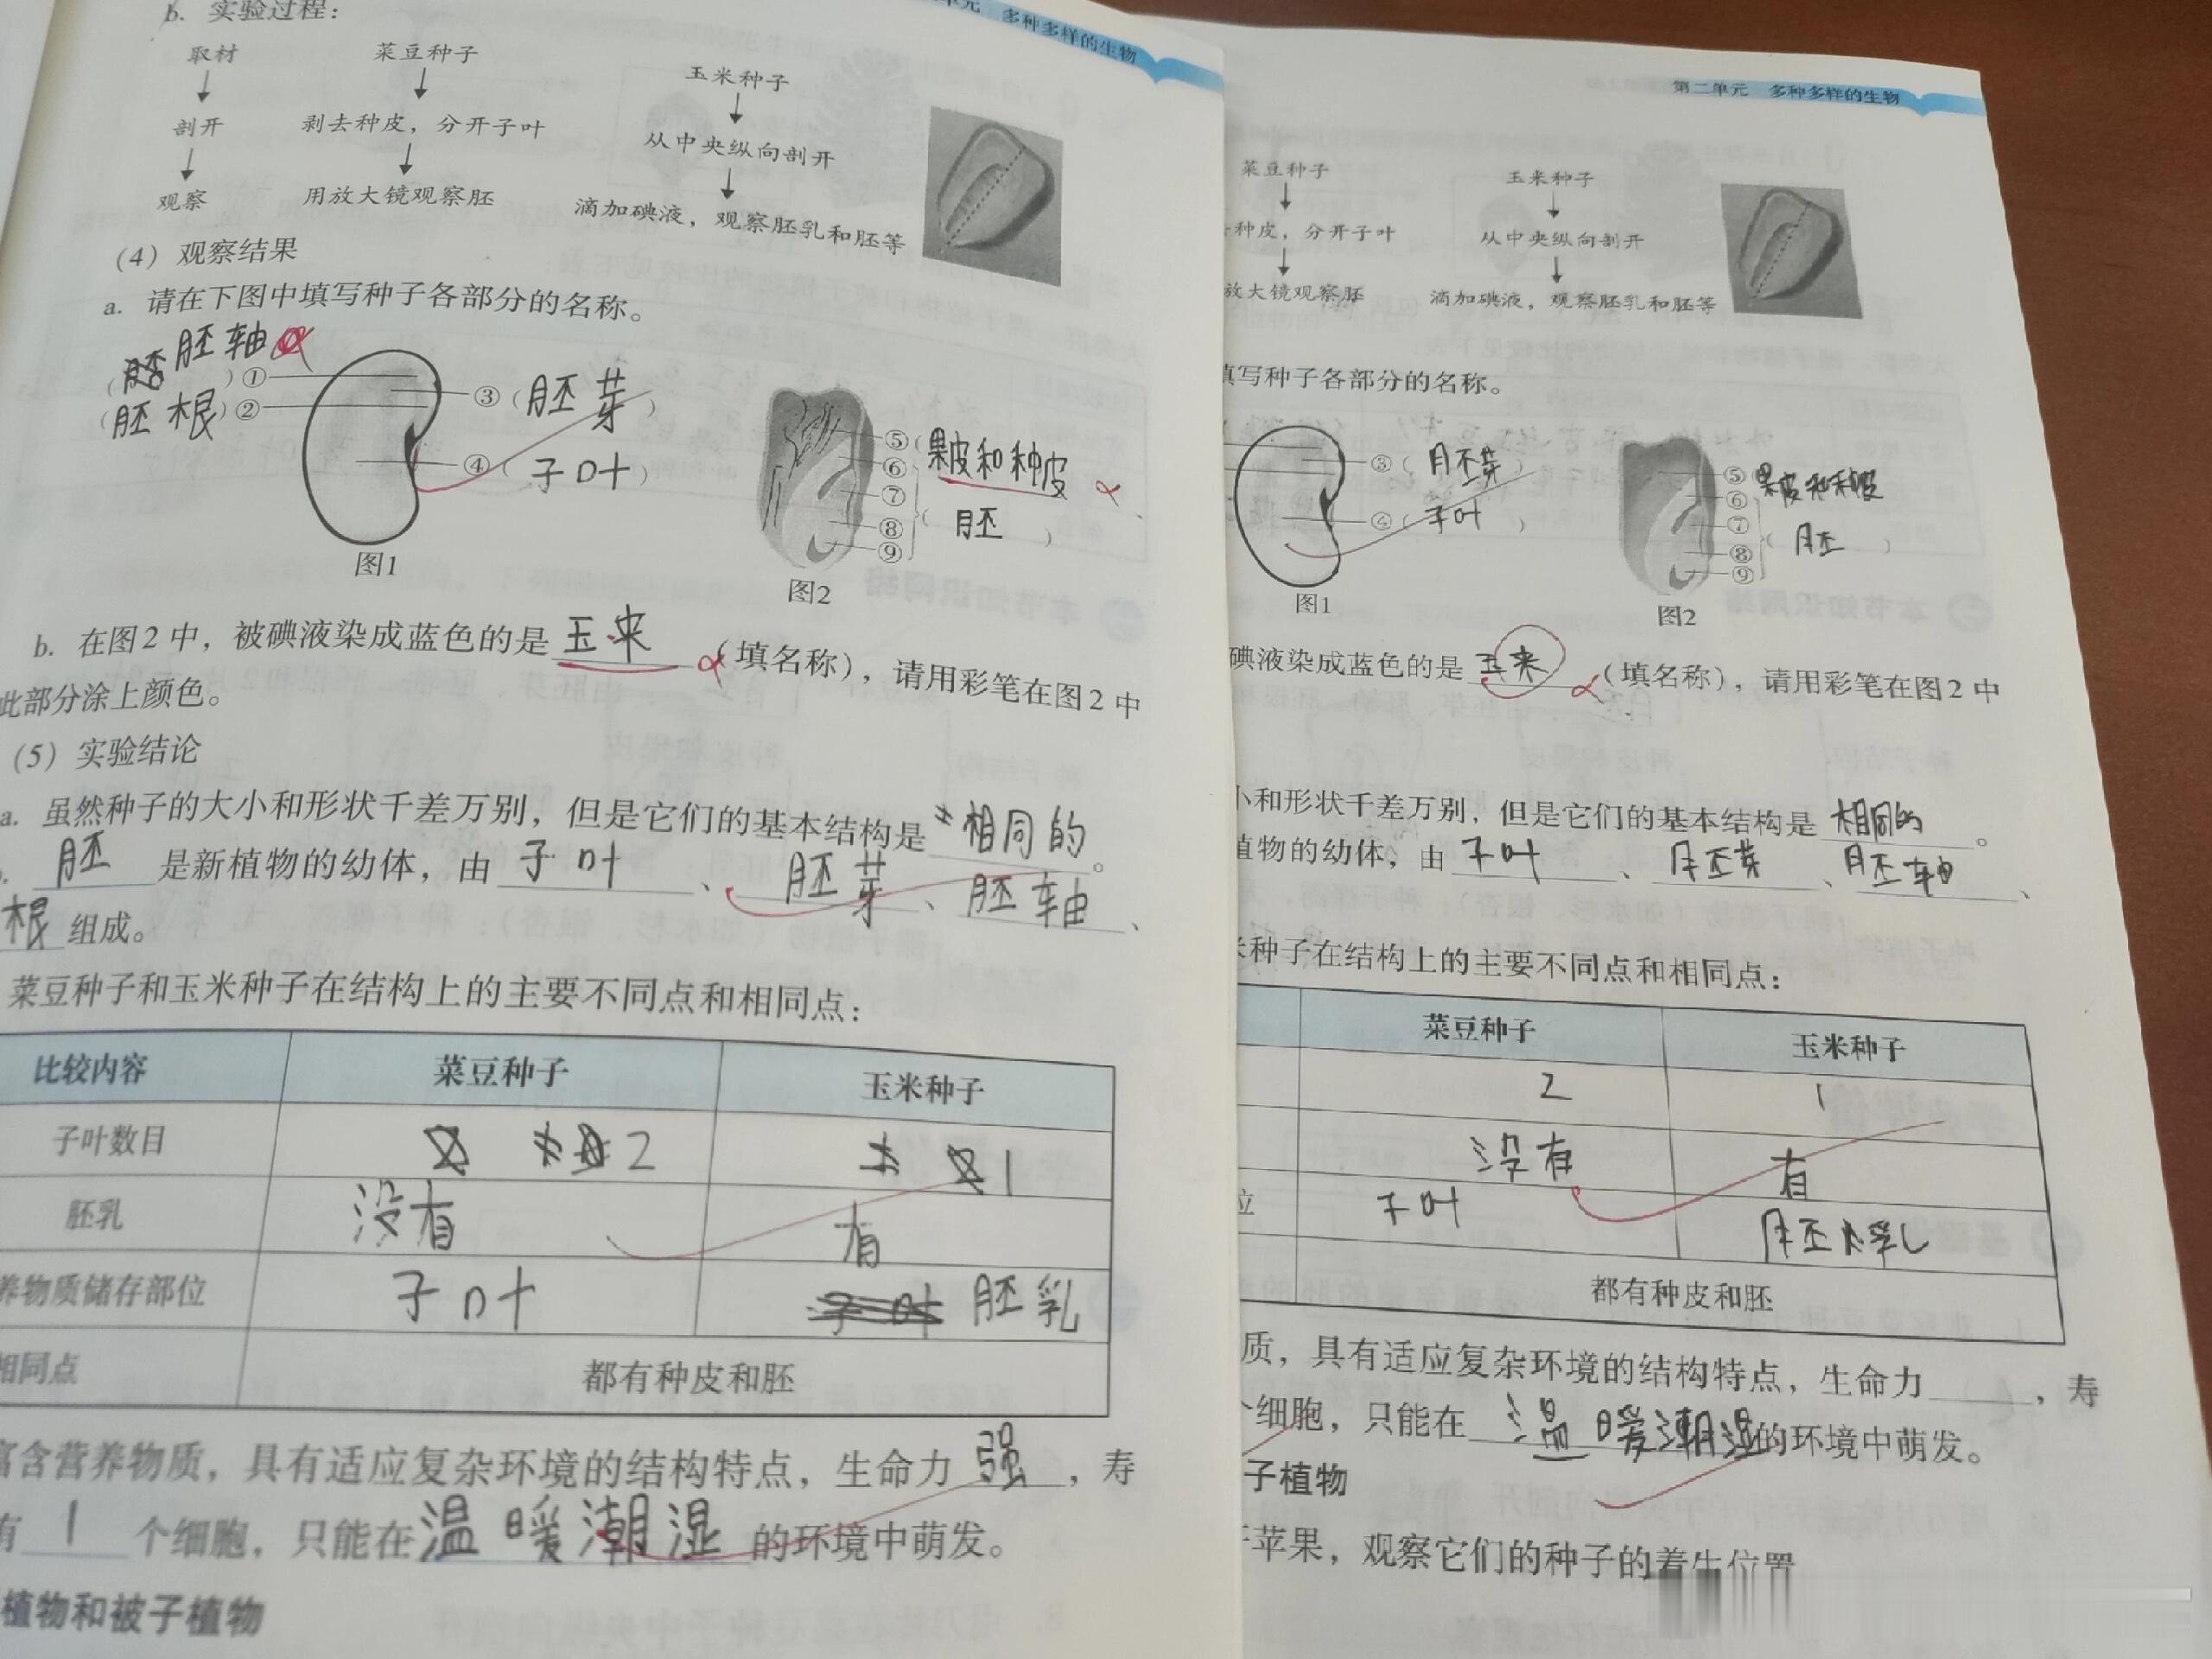 b. 实验过程：
取材 菜豆种子 玉米种子
剖开 剥去种皮，分开子叶 从中央纵向剖开
观察 用放大镜观察胚 滴加碘液，观察胚乳和胚等
（4）观察结果
a. 请在下图中填写种子各部分的名称。
胚轴
（ ）① ③（胚芽）
（胚根）② ④（子叶）
⑤（果皮和种皮
⑥
⑦
⑧（胚）
⑨
图1 图2
b. 在图2中，被碘液染成蓝色的是 玉米 （填名称），请用彩笔在图2中
此部分涂上颜色。
（5）实验结论
a. 虽然种子的大小和形状千差万别，但是它们的基本结构是 相同的 。
胚 是新植物的幼体，由 子叶 、 胚芽 、 胚轴 、
根 组成。
菜豆种子和玉米种子在结构上的主要不同点和相同点：
比较内容 菜豆种子 玉米种子
子叶数目 2 1
胚乳 没有 有
养物质储存部位 子叶 胚乳
相同点 都有种皮和胚
富含营养物质，具有适应复杂环境的结构特点，生命力 强 ，寿
有 1 个细胞，只能在 温暖潮湿 的环境中萌发。
植物和被子植物
单元 多种多样的生物
第二单元 多种多样的生物
菜豆种子 玉米种子
种皮，分开子叶 从中央纵向剖开
放大镜观察胚 滴加碘液，观察胚乳和胚等
填写种子各部分的名称。
③（胚芽）
④（子叶）
⑤果皮和种皮
⑥
⑦
⑧（胚）
⑨
图1 图2
碘液染成蓝色的是 玉米 （填名称），请用彩笔在图2中
小和形状千差万别，但是它们的基本结构是 相同的 。
植物的幼体，由 子叶 、 胚芽 、 胚轴 、
米种子在结构上的主要不同点和相同点：
菜豆种子 玉米种子
2 1
没有 有
位 子叶 胚乳
都有种皮和胚
质，具有适应复杂环境的结构特点，生命力 ，寿
个细胞，只能在 温暖潮湿 的环境中萌发。
子植物
苹果，观察它们的种子的着生位置